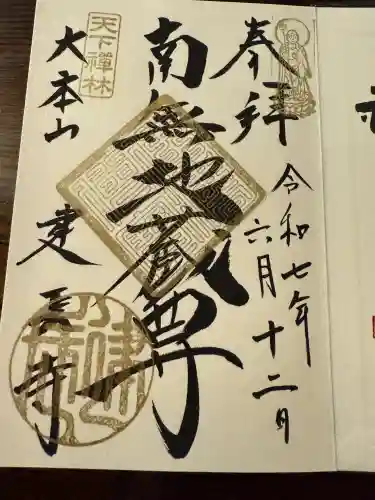 奉拝
令和七年
六月十二日
南無地蔵尊
天下禅林
大本山
建長寺